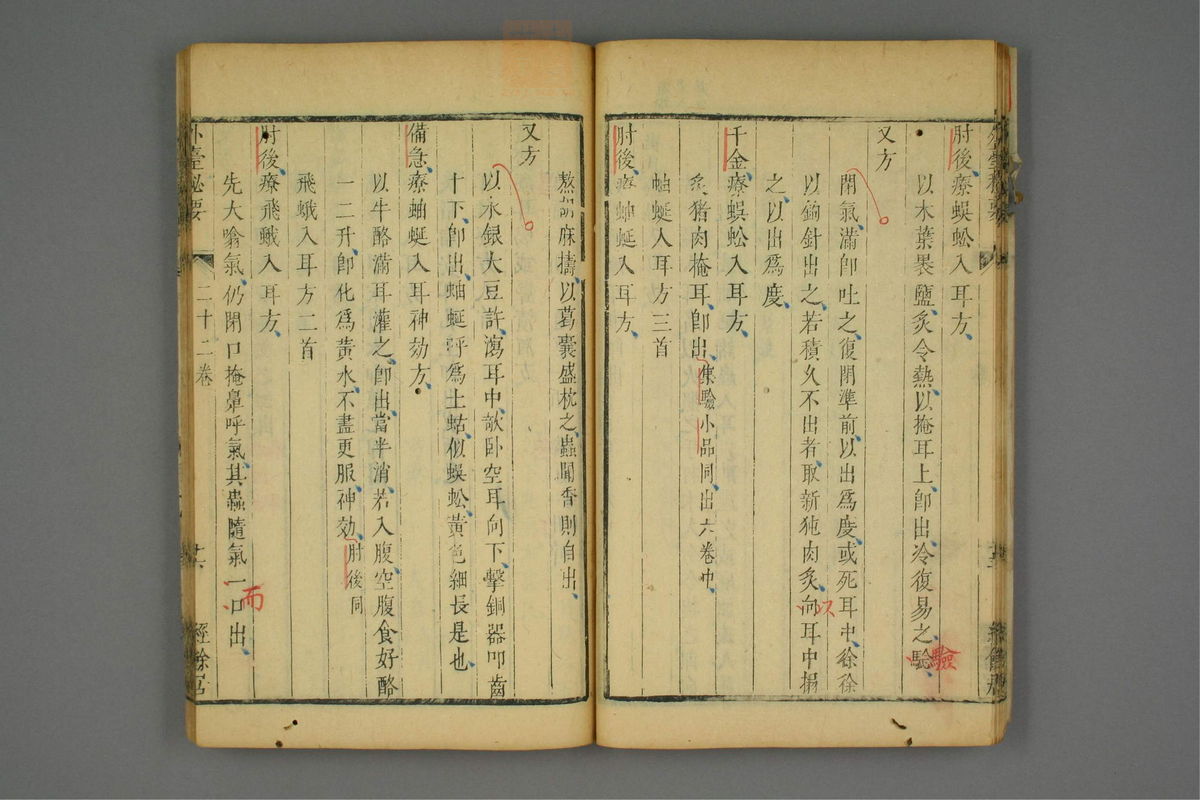 肘後療蜈蚣入耳方
以木葉裹鹽炙令熱以掩耳上卽出冷復易之驗
驗
又方
閉氣滿卽吐之復閉準前以出爲度或死耳中徐徐
以鉤針出之若積久不出者取新㹠肉炙向耳中搨
以
之以出爲度
千金療蜈蚣入耳方
炙猪肉掩耳卽出集驗小品同出六卷中
蚰蜒入耳方三首
肘後療蚰蜒入耳方
熬胡麻擣以葛囊盛枕之蟲聞香則自出
又方
以水銀大豆許瀉耳中欹卧空耳向下擊銅器叩齒
十下卽出蚰蜒呼爲土蛄似蜈蚣黃色細長是也
備急療蚰蜒入耳神効方
以牛酪滿耳灌之卽出當半消若入腹空腹食好酪
一二升卽化爲黃水不盡更服神効肘後同
飛蛾入耳方二首
肘後療飛蛾入耳方
先大噏氣仍閉口掩鼻呼氣其蟲隨氣一口出
而
外臺秘要
二十二卷
經餘居